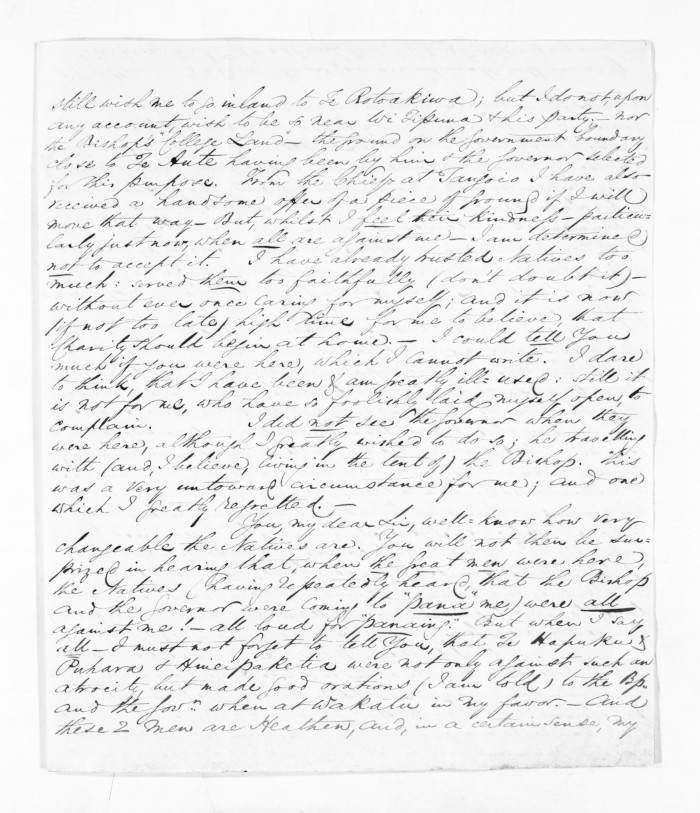 still wish me to go inland to Te Rotoakiwa; but I do not, upon
any account, wish to be so near Wi Tipuna & his party; – nor
the Bishop's "College Land" – the ground on the Government boundary
close to Te Aute having been by him & the Governor selected
for this purpose. From the Chiefs at Tangoio I have also
received a handsome offer of a piece of ground if I will
move that way – But, whilst I feel their kindness – particu-
larly just now, when all are against me – I am determined
not to accept it. I have already trusted Natives too
much: served them too faithfully (don't doubt it) –
without ever once caring for myself; and it is now
(if not too late) high time for me to believe, that
Charity should begin at home. – I could tell You
much if you were here, which I cannot write. I dare
to think, that I have been & am greatly ill=used: still it
is not for me, who have so foolishly laid myself open, to
complain. I did not see the Governor when they
were here, although I greatly wished to do so; he travelling
with (and, I believe, living in the tent of) the Bishop. This
was a very untoward circumstance for me; and one
which I greatly regretted. –
You, my dear Sir, well=know how very
changeable the Natives are. You will not then be sur=
prized in hearing that, when the great men were here,
the Natives (having repeatedly heard, that the Bishop
and the Governor were coming to "pana" me) were all
against me! – all loud for "panaing." But when I say
all – I must not forget to tell You, that Te Hapuku &
Puhara & Hineipaketia were not only against such an
atrocity, but made good orations (I am told) to the Bp.
and the Govr. when at Wakatu in my favor. – And
these 2 men are Heathen, and, in a certain sense, my